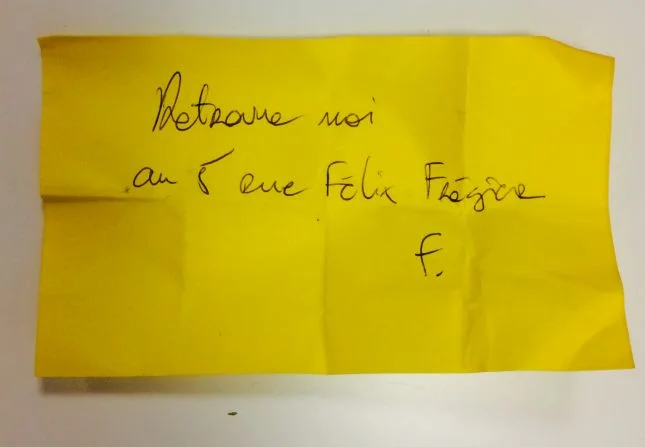 Retrouve moi
au 5 rue Félix Frégière
F.